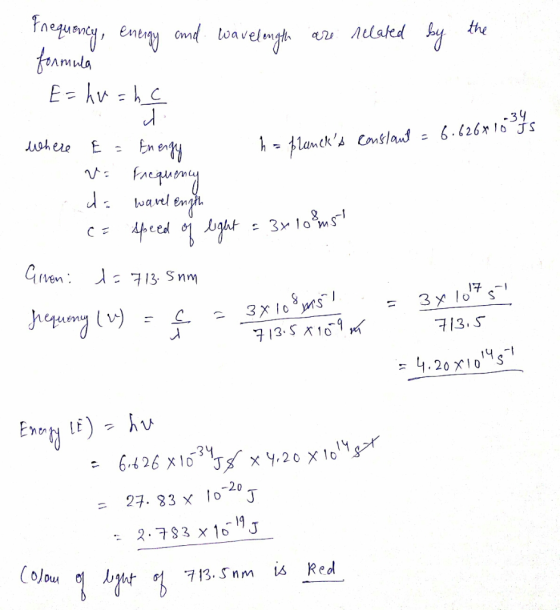 Frequency, energy and wavelength are related by the
formula
E = hν = h c/λ
where E = Energy h = planck's constant = 6.626×10^-34 Js
ν = Frequency
λ = wavelength
c = speed of light = 3×10^8 ms^-1
Given: λ = 713.5 nm
frequency (ν) = c/λ = 3×10^8 ms^-1 / 713.5×10^-9 m = 3×10^17 s^-1 / 713.5
= 4.20×10^14 s^-1
Energy (E) = hν
= 6.626×10^-34 Js × 4.20×10^14 s^-1
= 27.83 × 10^-20 J
= 2.783 × 10^-19 J
Colour of light of 713.5nm is Red